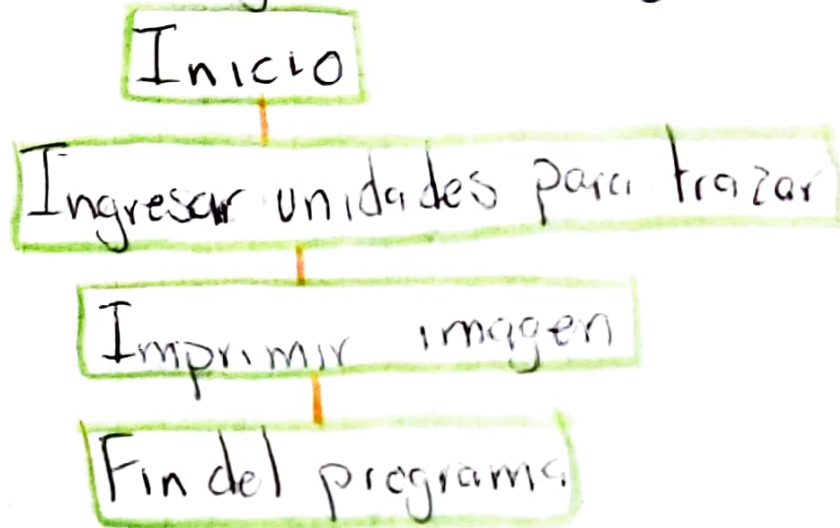 Inicio
Ingresar unidades para trazar
Imprimir imagen
Fin del programa